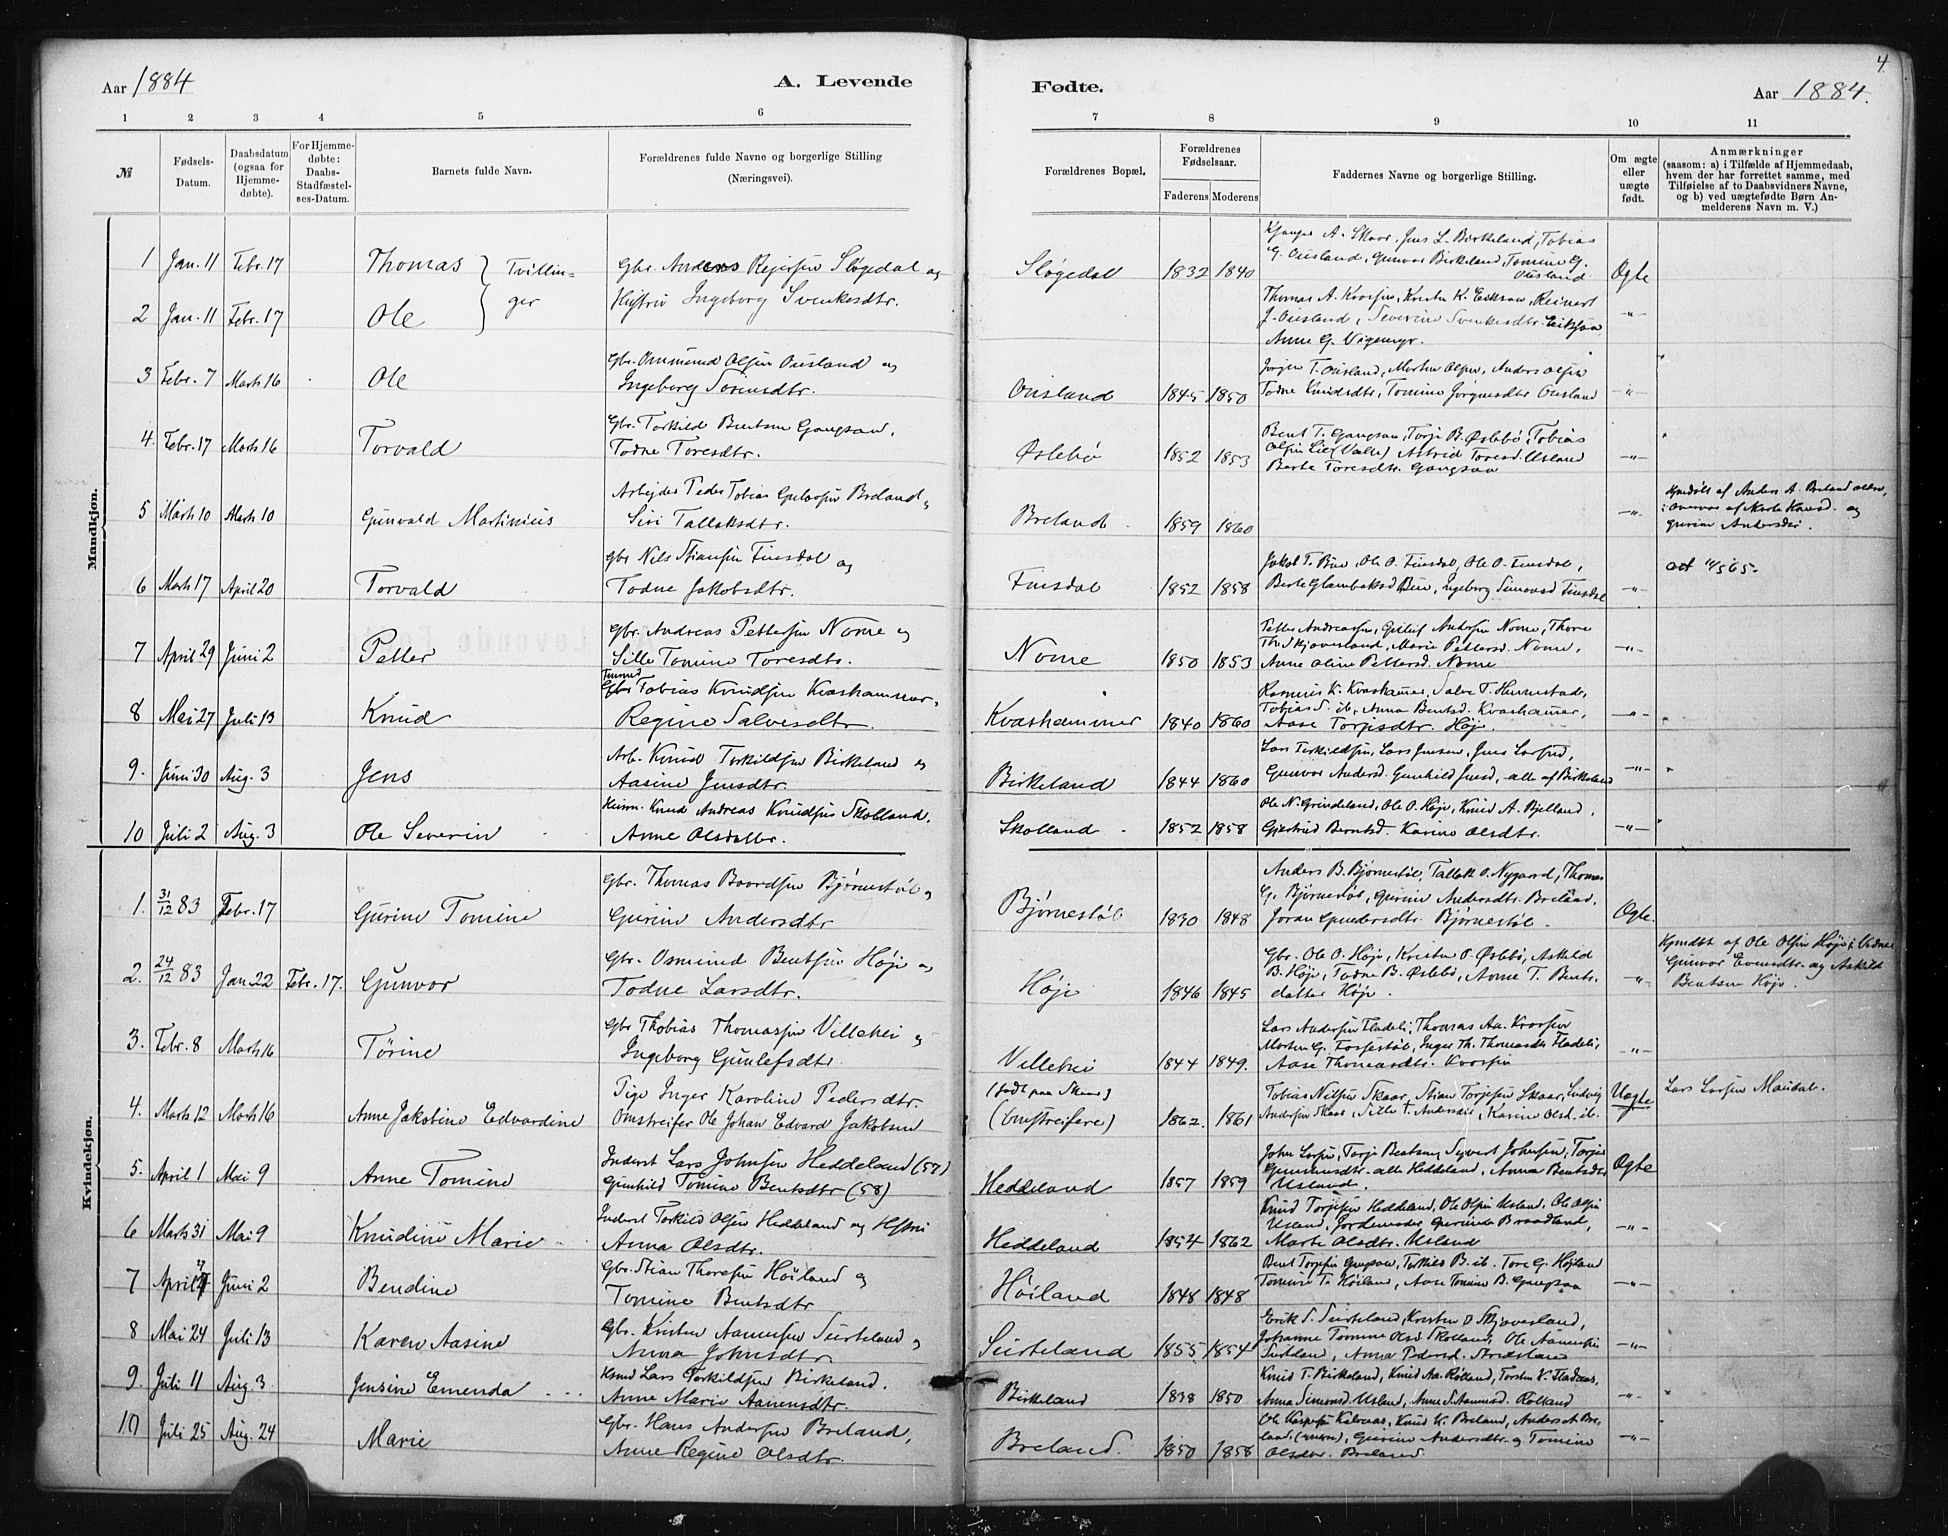 Aar 1884 A. Levende Fødte. Aar 1884. 4
1 2 3 4 5 6 7 8 9 10 11
№
Fødsels-Datum.
Daabsdatum (ogsaa for Hjemme-døbte).
For Hjemme-døbte: Daabs-Stadfæstel-ses-Datum.
Barnets fulde Navn.
Forældrenes fulde Navne og borgerlige Stilling (Næringsvei).
Forældrenes Bopæl.
Forældrenes Fødselsaar.
Faderens Moderens
Faddernes Navne og borgerlige Stilling.
Om ægte eller uægte født.
Anmærkninger
(saasom: a) i Tilfælde af Hjemmedaab,
hvem der har forrettet samme, med
Tilføielse af to Daabsvidners Navne,
og b) ved uægtefødte Børn An-
melderens Navn m. V.)
Mandkjøn.
1 Jan. 11 Febr. 17 Thomas } Tvillin- Gbr. Anders Sløgedal og Sløgedal 1832 1840 A. Skaar, Jens L. Birkeland, Tobias
G. Ousland, Gunvor Birkeland, Tomine G. Ousland Ægte
2 Jan. 11 Febr. 17 Ole } ger Ingeborg Svenkesdtr. Thomas A. K. Reinert
J. Ousland, Severine Svenkesdtr.
Anne G. -"-
3 Febr. 7 Marts 16 Ole Gbr. Ommund Olsen Ousland og Ousland 1845 1850 Jørgen T. Ousland, Morten Olsen, Anders Olsen
Ingeborg Todne Knudsdtr, Tomine Jørgensdtr Ousland -"-
4. Febr. 17 Marts 16 Torvald Gbr. Torkild Bentsen Gangsaa, Øslebø 1852 1853 Bent T. Gangsaa, Torje B. Øslebø, Tobias
Todne Toresdtr. Olsen Lie (Valle) Astrid Toresd. Usland -"-
Berte Toresdtr. Gangsaa
5 Marts 10 Marts 10 Gunvald Martinius Arbejder Peder Tobias Breland, Breland 1859 1860 -"- af Anders A. Breland
Siri Tallaksdtr. og
6 Marts 17 April 20 Torvald Gbr Nils Finsdal og Finsdal 1852 1858 Jakob T. Ole O. Finsdal, Ole O. Finsdal,
Todne Jakobsdtr. Berte Ingeborg Finsdal -"-
7 April 29 Juni 2 Petter Gbr. Andreas Pettersen Nome og Nome 1850 1853 Petter Andreassen, Nome, Thore
Sille Tomine Toresdtr. Th. Skjøvesland, Marie Pettersd. Nome, -"-
Anne Oline Pettersd. Nome
8 Mai 27 Juli 13 Knud Gbr Tobias Knudsen Kvashammer. Kvashammer 1840 1860 Rasmus K. Kvashamer, Salve T.
Regine Salvesdtr. Tobias S. ib, Anna Bentsd. Kvashamer, -"-
Aase Torjisdtr. Høje.
9. Juni 30 Aug. 3 Jens Arb. Knud Torkildsen Birkeland og Birkeland 1844 1860 Lars Torkildsen, Lars Jensen, Jens
Aasine Jensdtr. Gunvor Andersd. Gunhild Jensd, alle af Birkeland -"-
10 Juli 2 Aug. 3 Ole Severin Knud Andreas Knudsen Skolland. Skolland 1852 1858 Ole N. Grindeland, Ole O. Høje, Knud A. Bjelland,
Anne Olsdatter. Karine Olsdtr. -"-
Kvindekjøn.
1. 31/12 83 Febr. 17 Gurine Tomine Gbr. Thomas Baardsen Bjørnestøl og Bjørnestøl 1830 1848 Anders B. Bjørnestøl, Tallak O. Nygaard, Thomas
Gurine Andersdtr G. Bjørnestøl, Gurine Andersdtr. Breland,
Joran Gundersdtr. Bjørnestøl. Ægte.
2. 24/12 83 Jan. 22 Febr. 17. Gunvor Gbr. Osmund Bentsen Høje og Høje 1846 1845 Gbr. Ole O. Høje, Kristen O. Øslebø, Askild
Todne Larsdtr. B. Høje, Todne B. Øslebø, Anne T. Bents-
datter Høje. -"- af Ole Olsen Høje
Gunvor og Askild
Bentsen Høje.
3. Febr. 8 Marts 16 Tørine Gbr Thobias Thomassen Villekei og Villekei 1844 1849. Lars Andersen Thomas Aa.
Ingeborg Gunlefsdtr. Morten G. Inger Th. Thomasdtr -"-
Aase Thomasdtr.
4. Marts 12 Marts 16 Anne Jakobine Edvardine Pige Inger Karoline Pedersdtr. (født paa Skaar) Tobias Nilsen Skaar, Stian Torjesen Skaar, Ludvig Lars Larsen Mandal.
Omstreifer Ole Johan Edvard Jakobsen (Omstreifere) 1862. 1861 Andersen Skaar, Sille T. Karine Olsd. ib. Uægte
5. April 1 Mai 9 Anne Tomine Inderst Lars Johnsen Heddeland (57) Heddeland 1857 1859 John Torje Sivert Johnsen,
Gunhild Tomine Bentsdtr (58) alle Heddeland, Anna Bentsdtr
Usland. Ægte
6 Marts 31 Mai 9 Knudine Marie Inderst Torkild Olsen Heddeland og Heddeland 1854 1862 Knud Torjesen Heddeland, Ole Olsen Usland, Ole Olsen
Anna Olsdtr. Usland, Jordemoder Braadland, -"-
Marte Olsdtr. Usland
7 April Juni 2 Bendine Gbr. Stian Thoresen Høiland og Høiland 1848 1848 Bent Torjesen Gangsaa, Torkild B. ib. Tore G. Høiland
Tomine Bentsdtr Tomine T. Høiland, Aase Tomine B. Gangsaa -"-
8 Mai 24 Juli 13 Karen Aasine Gbr. Kristen Aanensen Surteland og Surteland 1855 1854 Erik S. Surteland, Kristen O Skjøvesland,
Anna Johnsdtr. Johanne Tomine Olsd. Skolland, Ole Aanensen
Surteland, Anna Pedersd. -"-
9. Juli 11 Aug. 3 Jensine Emenda Lars Torkildsen Birkeland. Birkeland 1838 1850 Knud T. Birkeland, Knud Aa. Torsten K.
Anne Marie Aanensdtr. Anna Simonsd. Usland, Anne S. -"-
10 Juli 25 Aug. 24 Marie Gbr. Hans Andersen Breland, Breland. 1850 1858 Ole Knud K. Breland, Anders A Bre-
Anne Regine Olsdtr. land, Gurine Andersdtr. og Tomine -"-
Olsdtr. Breland.